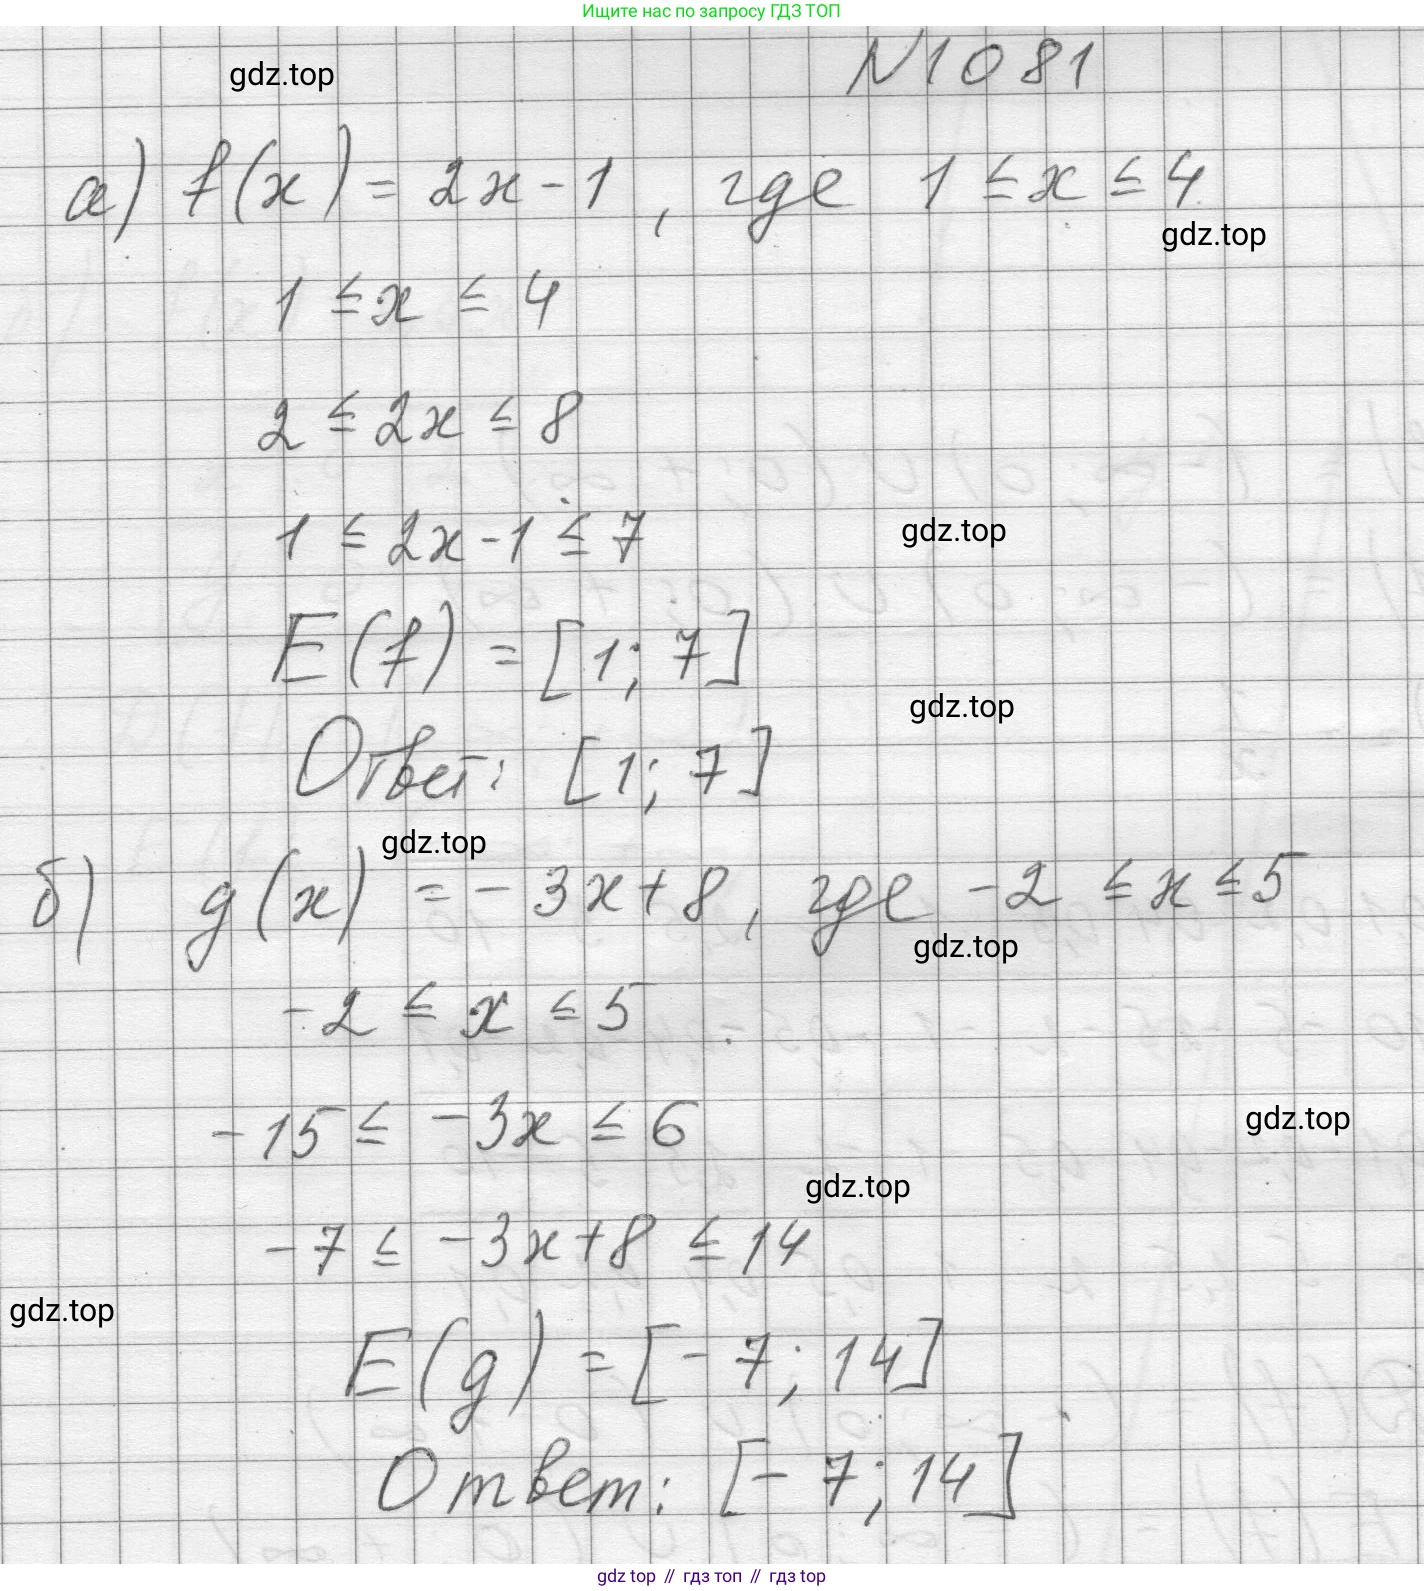 Ищите нас по запросу ГДЗ ТОП
N1081
gdz.top
а) f(x) = 2x - 1, где 1 ≤ x ≤ 4
gdz.top
1 ≤ x ≤ 4
2 ≤ 2x ≤ 8
1 ≤ 2x - 1 ≤ 7
gdz.top
E(f) = [1; 7]
gdz.top
Ответ: [1; 7]
gdz.top
б) g(x) = - 3x + 8, где - 2 ≤ x ≤ 5
gdz.top
- 2 ≤ x ≤ 5
- 15 ≤ - 3x ≤ 6
gdz.top
gdz.top
- 7 ≤ - 3x + 8 ≤ 14
gdz.top
E(g) = [- 7; 14]
Ответ: [- 7; 14]
gdz top // гдз топ // гдз top